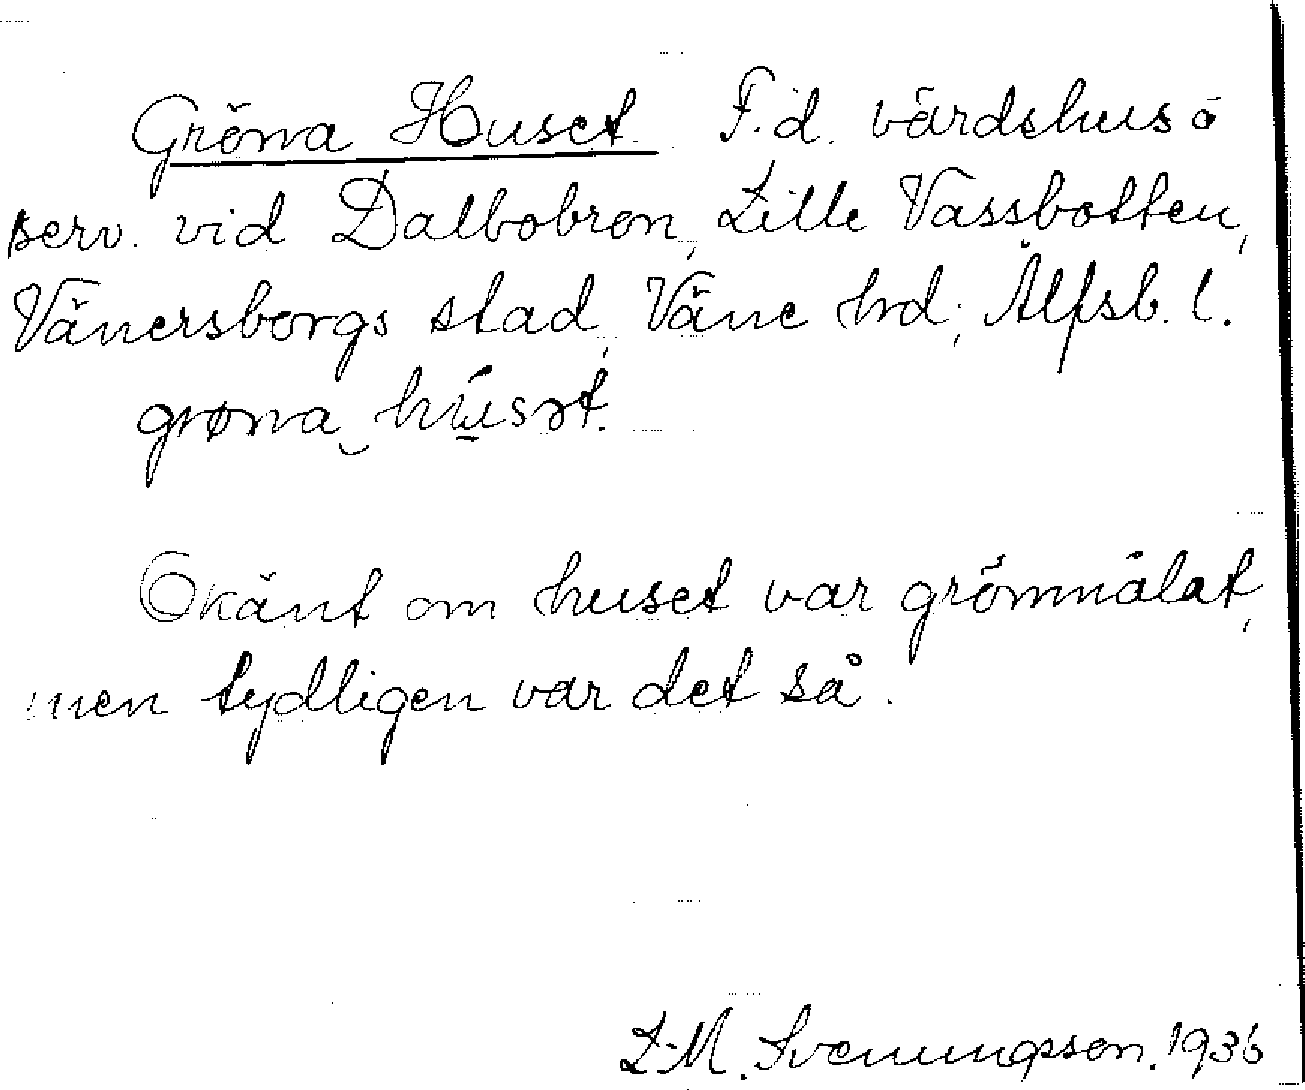 Gröna Huset. F.d. värdshus å
serv. vid Dalbobron, Lille Vassbotten,
Vänersborgs stad, Väne hrd; Älfsb. l.
grøna hús.
Okänt om huset var grönmålat,
men tydligen var det så.
L-M. Svenungsson. 1936